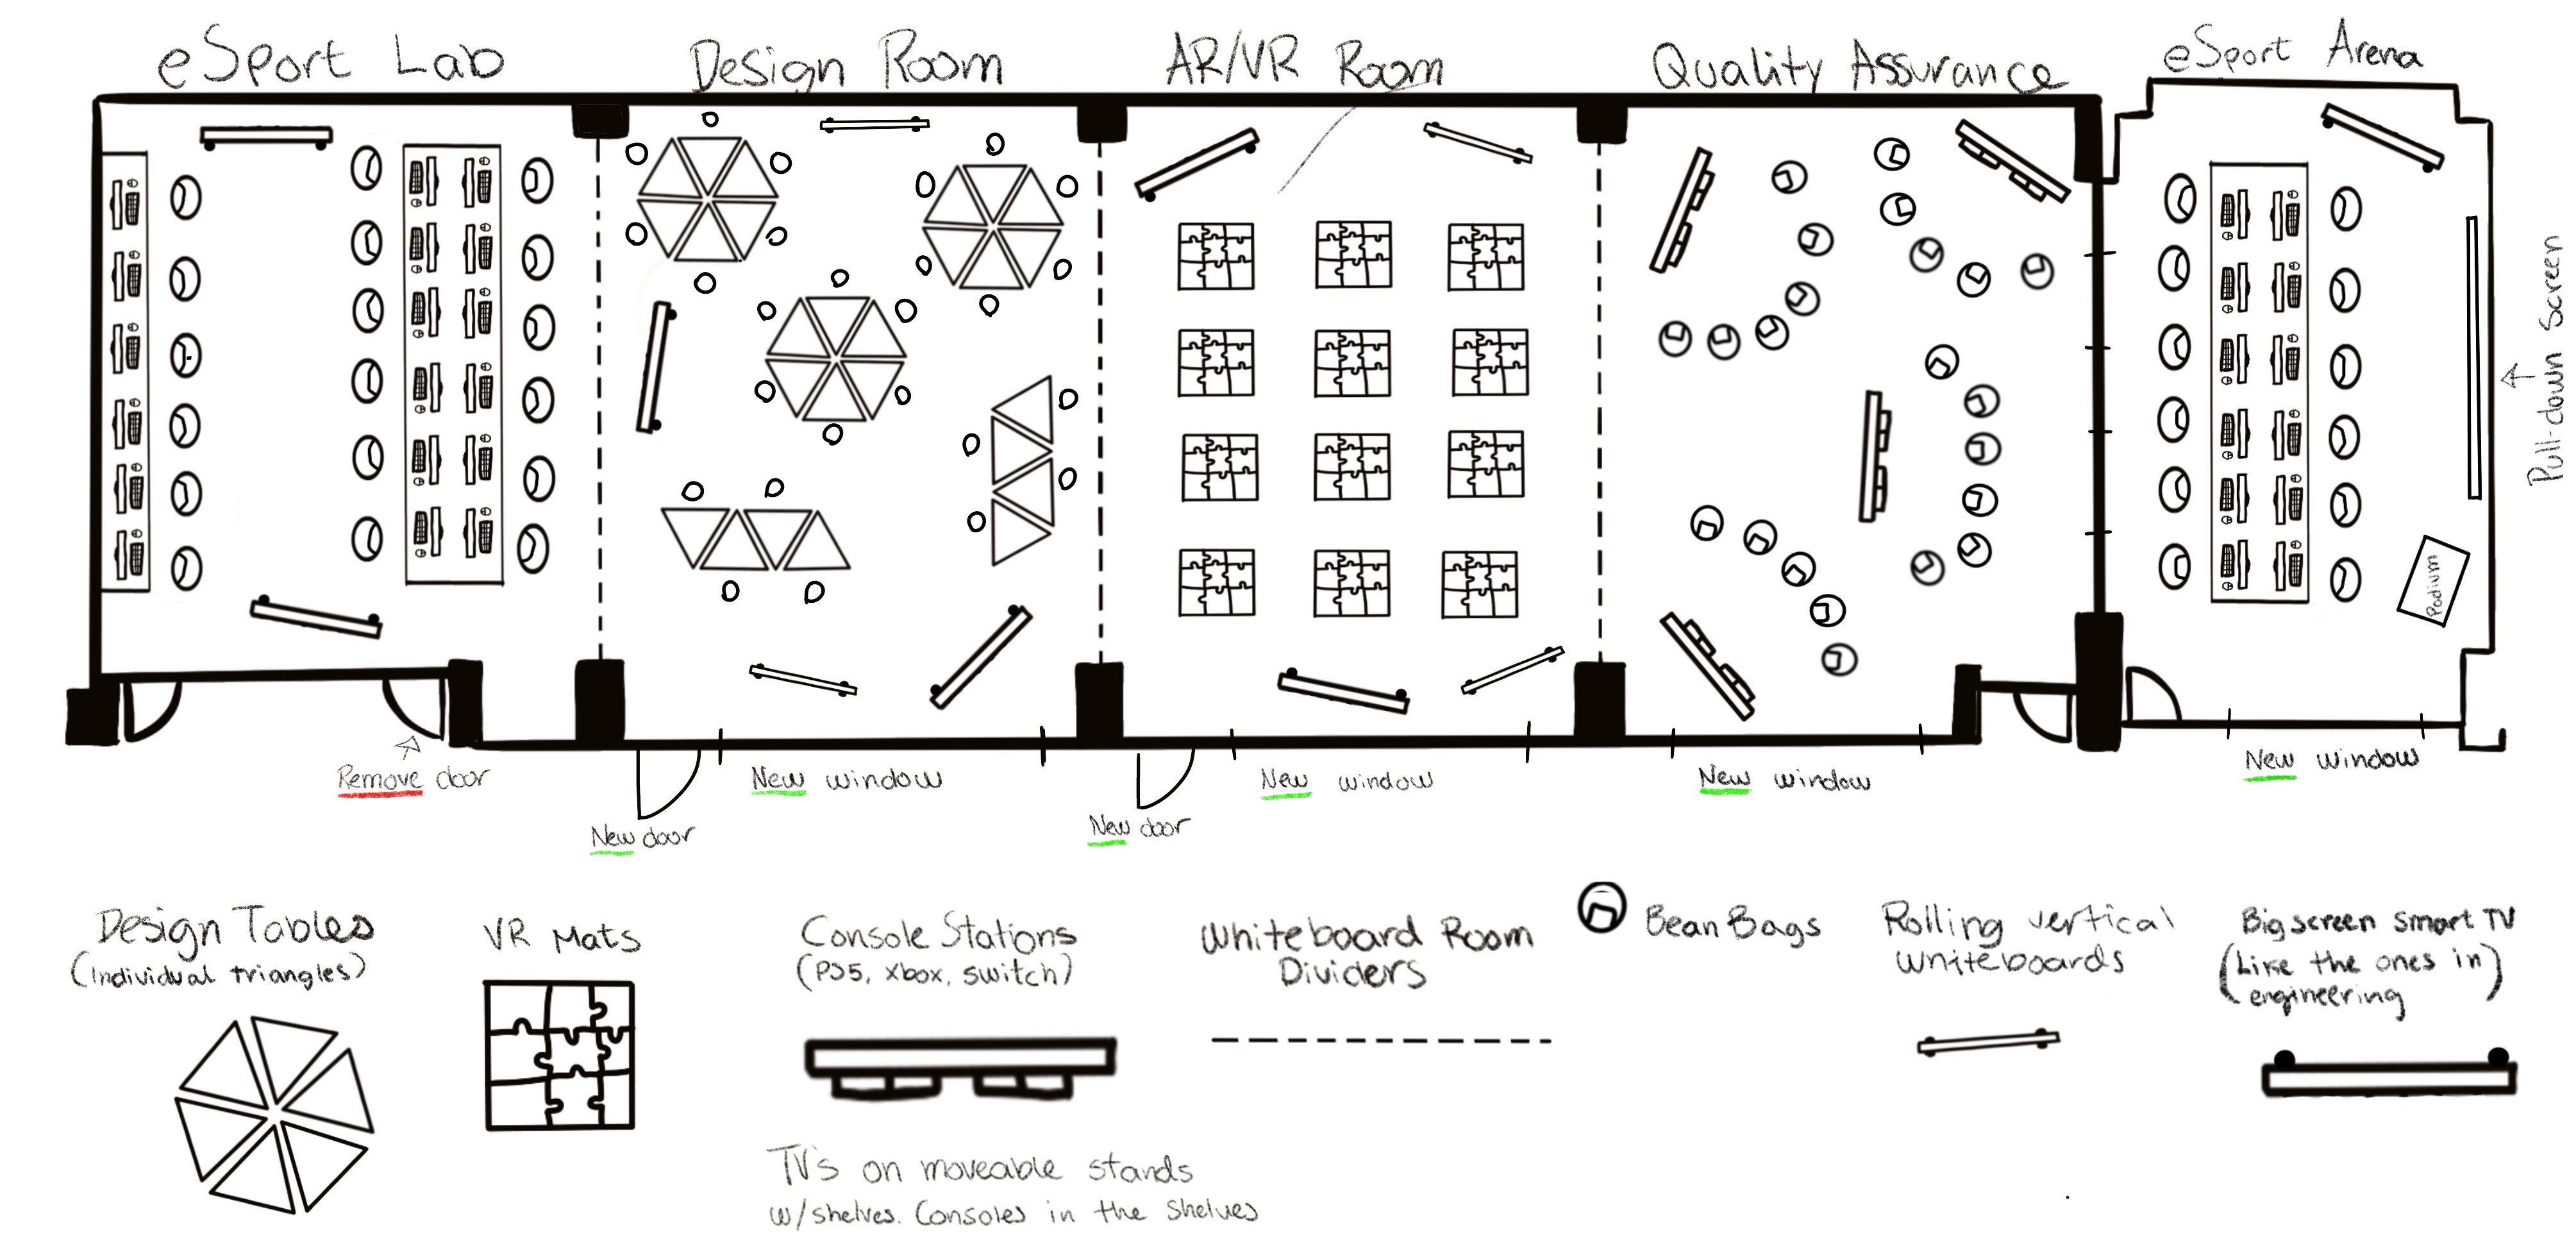 eSport Lab
Design Room
AR/VR Room
Quality Assurance
eSport Arena
Pull-down Screen
Podium
Remove door
New door
New window
New door
New window
New window
New window
Design Tables
(Individual triangles)
VR Mats
Console Stations
(PS5, Xbox, Switch)
TVs on moveable stands
w/shelves. Consoles in the shelves
Whiteboard Room
Dividers
Bean Bags
Rolling vertical
whiteboards
Big screen smart TV
(Like the ones in
engineering)